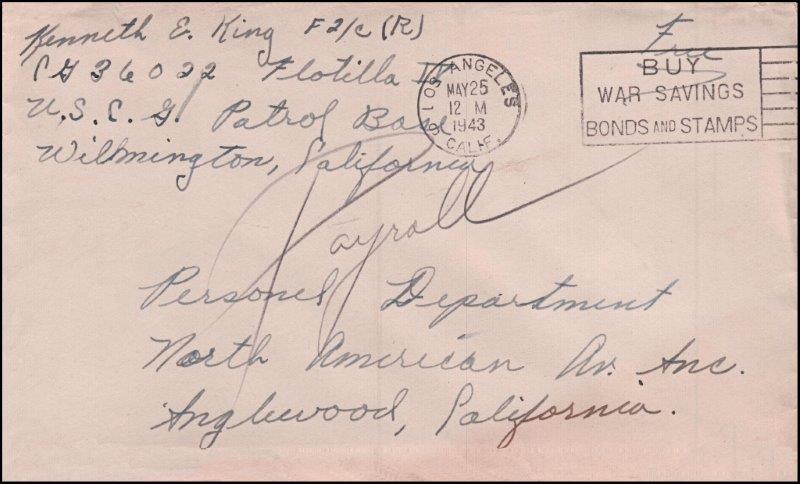 Kenneth E. King F2/c (R)
CG 36022 Flotilla II
U.S.C.G. Patrol Base
Wilmington, California
LOS ANGELES
MAY 25
12 M
1943
CALIF.
Free
BUY
WAR SAVINGS
BONDS AND STAMPS
Payroll
Personel Department
North American Av. Inc.
Inglewood, California.